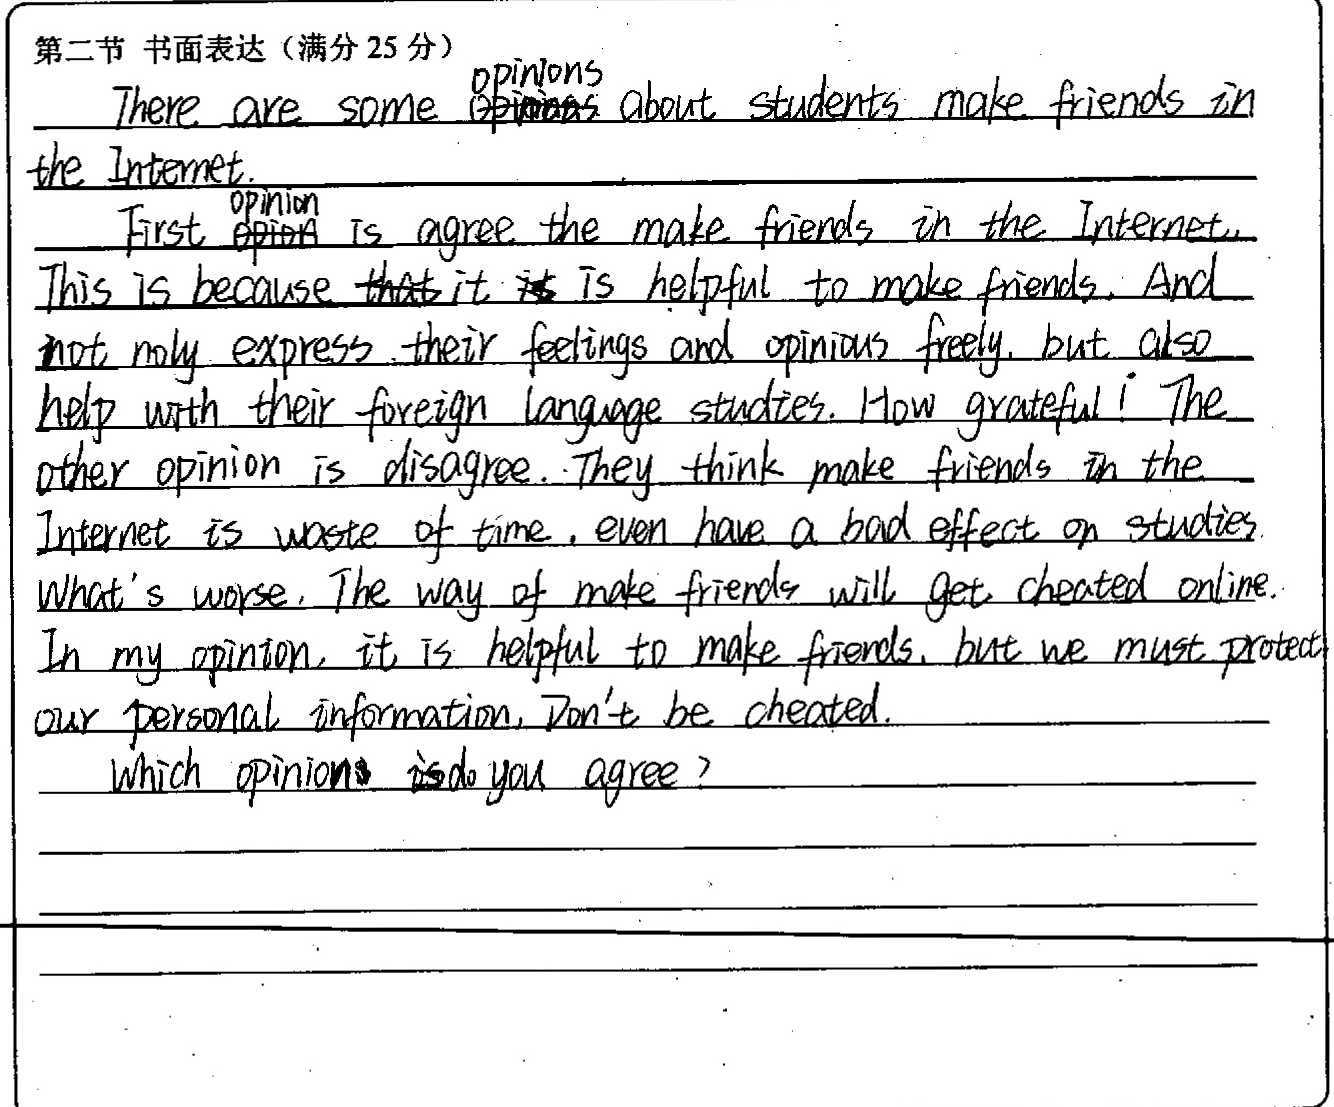 第二节 书面表达（满分 25 分）
There are some opinions about students make friends in
the Internet.
First opinion is agree the make friends in the Internet.
This is because it is helpful to make friends. And
not noly express their feelings and opinious freely, but also
help with their foreign language studies. How grateful! The
other opinion is disagree. They think make friends in the
Internet is waste of time, even have a bad effect on studies.
What's worse, The way of make friends will get cheated online.
In my opinion, it is helpful to make friends, but we must protect
our personal information, Don't be cheated.
Which opinion do you agree?